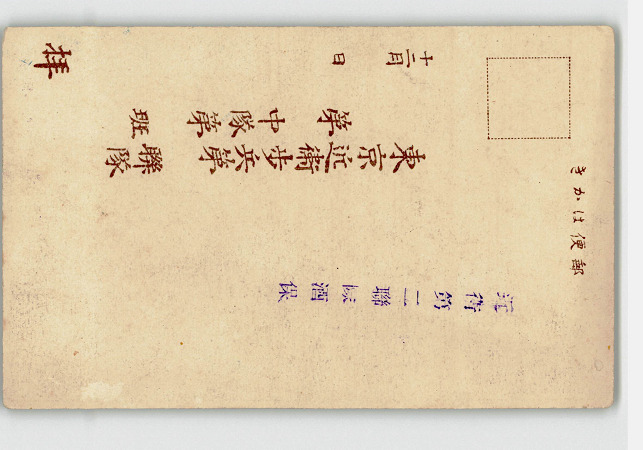 郵便はかき
近衛第二聯隊酒保
東京近衛歩兵第 聯隊
第 中隊第 班
十二月 日
拝